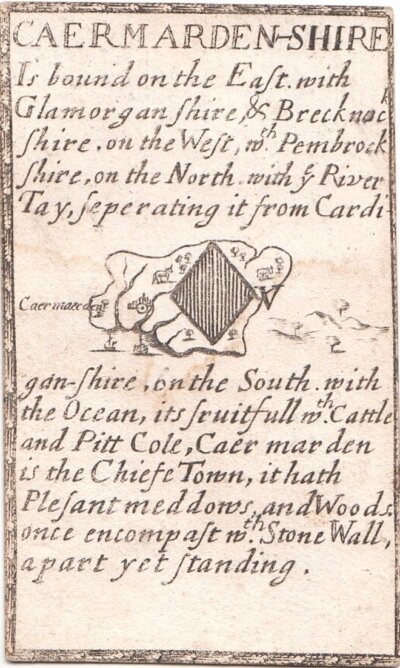 CAERMARDEN-SHIRE
Is bound on the East with
Glamorgan ſhire, & Brecknock
ſhire, on the Weſt, wth. Pembrock
ſhire, on the North with ye River
Tay, ſeperating it from Cardi-
Caermaerden
V
gan-ſhire, on the South with
the Ocean, its fruitfull wth. Cattle
and Pitt Cole, Caermarden
is the Chiefe Town, it hath
Pleſant meddows, and Woods.
once encompaſt wth. Stone Wall,
a part yet ſtanding.